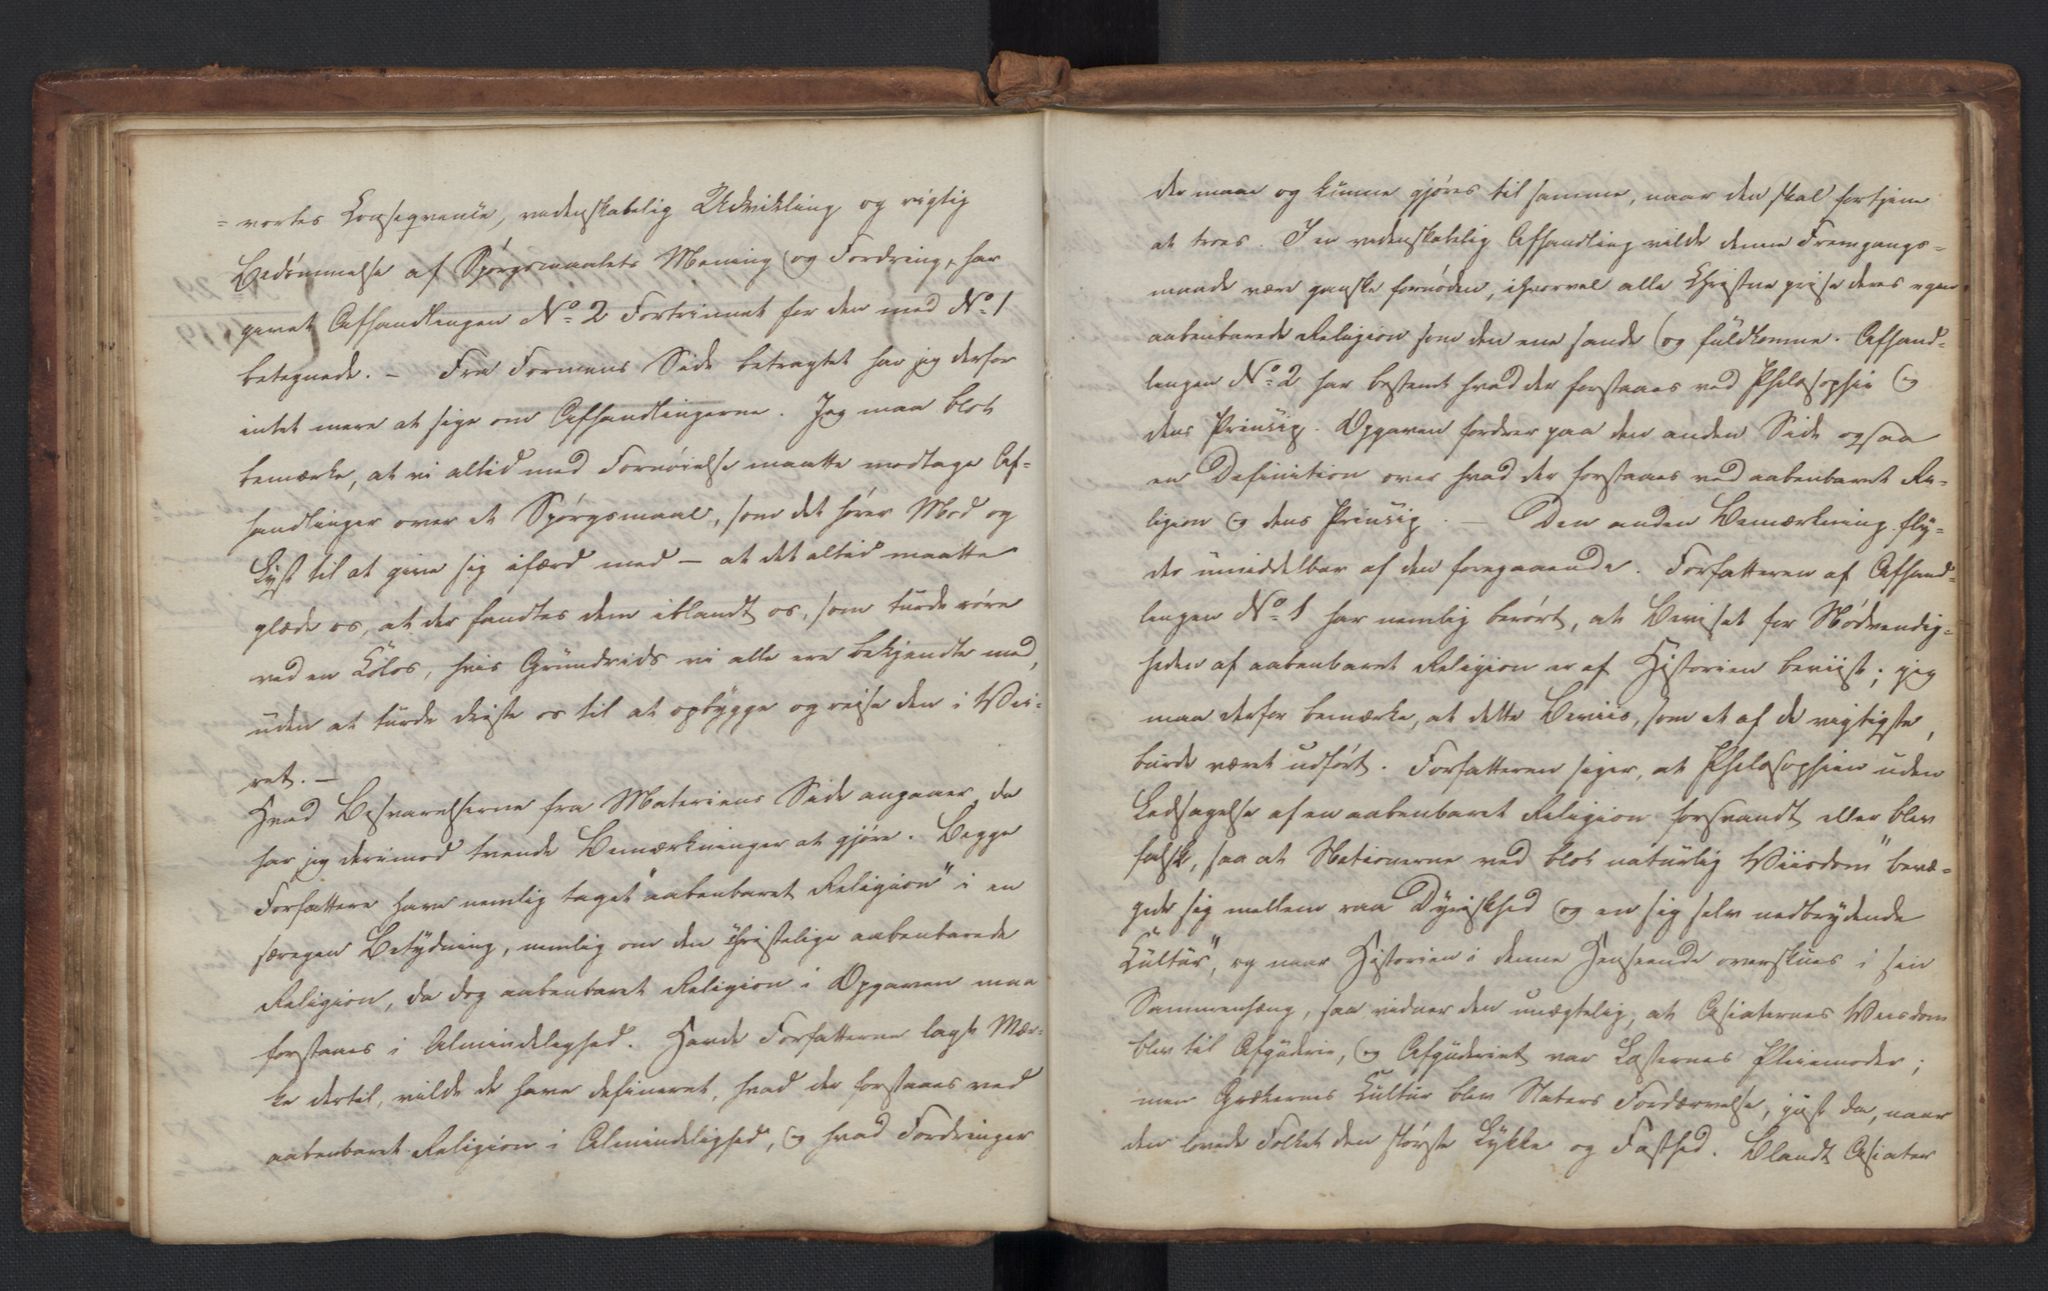 = vortes Conseqvense, vedenskabelig Udvikling og rigtig
Bedömmelse af Spörgsmaalets Mening og Fordring, har
givet Afhandlingen No 2 Fortrinnet for den med No 1
betegnede. – Fra Formens Side betragtet har jeg derfor
intet mere at sige om Afhandlingerne. Jeg maa blot
bemærke, at vi altid med Fornöielse maatte modtage Af-
handlinger over et Spörgsmaal, som det hörer Mod og
Lyst til at give sig ifærd med – at det altid maatte
glæde os, at der fandtes dem iblandt os, som turde röre
ved en Colos, hvis Grundrids vi alle ere bekjendte med,
uden at turde driste os til at opbygge og reise den i Vei-
ret. –
Hvad Besvarelserne fra Materiens Side angaaer, da
har jeg derimod tvende Bemærkninger at gjöre. Begge
Forfattere have nemlig taget "aabenbaret Religion" i en
særegen Betydning, nemlig om den christelige aabenbarede
Religion, da dog aabenbaret Religion i Opgaven maa
forstaaes i Almindelighed. Havde Forfatterne lagt Mær-
ke dertil, vilde de have defineret, hvad der forstaaes ved
aabenbaret Religion i Almindelighed, og hvad Fordringer
der maae og kunne gjöres til samme, naar den skal fortjene
at troes. I en vedenskabelig Afhandling vilde denne Fremgangs-
maade være ganske fornöden, ihvorvel alle Christne prise deres egen
aabenbarede Religion som den ene sande og fuldkomne. Afhand-
lingen No 2 har bestemt hvad der forstaaes ved Philosophie og
dens Prinsip. Opgaven fordrer paa den anden Side ogsaa
en Definition over hvad der forstaaes ved aabenbaret Re-
ligion og dens Prinsip. – Den anden Bemærkning fly-
der umiddelbar af den foregaaende. Forfatteren af Afhand-
lingen No 1 har nemlig berört, at Beviset for Nödvendig-
heden af aabenbaret Religion er af Historien beviist; jeg
maa derfor bemærke, at dette Beviis, som et af de vigtigste,
burde været udfört. Forfatteren siger, at Philosophien uden
Ledsagelse af en aabenbaret Religion forsvandt eller blev
falsk, saa at Nationerne ved blot naturlig Viisdom "bevæ-
gede sig mellem raa Dyriskhed og en sig selv nedbrydende
Cultur", og naar Historien i denne Henseende overskues i sin
Sammenhæng, saa vidner den unægtelig, at Asiaternes Viisdom
blev til Afguderie, og Afguderiet var Lasternes Pleiemoder;
men Grækernes Cultur blev Statens Fordærvelse, just da, naar
den lovede Folket den störste Lykke og Fasthed. Blandt Asiater